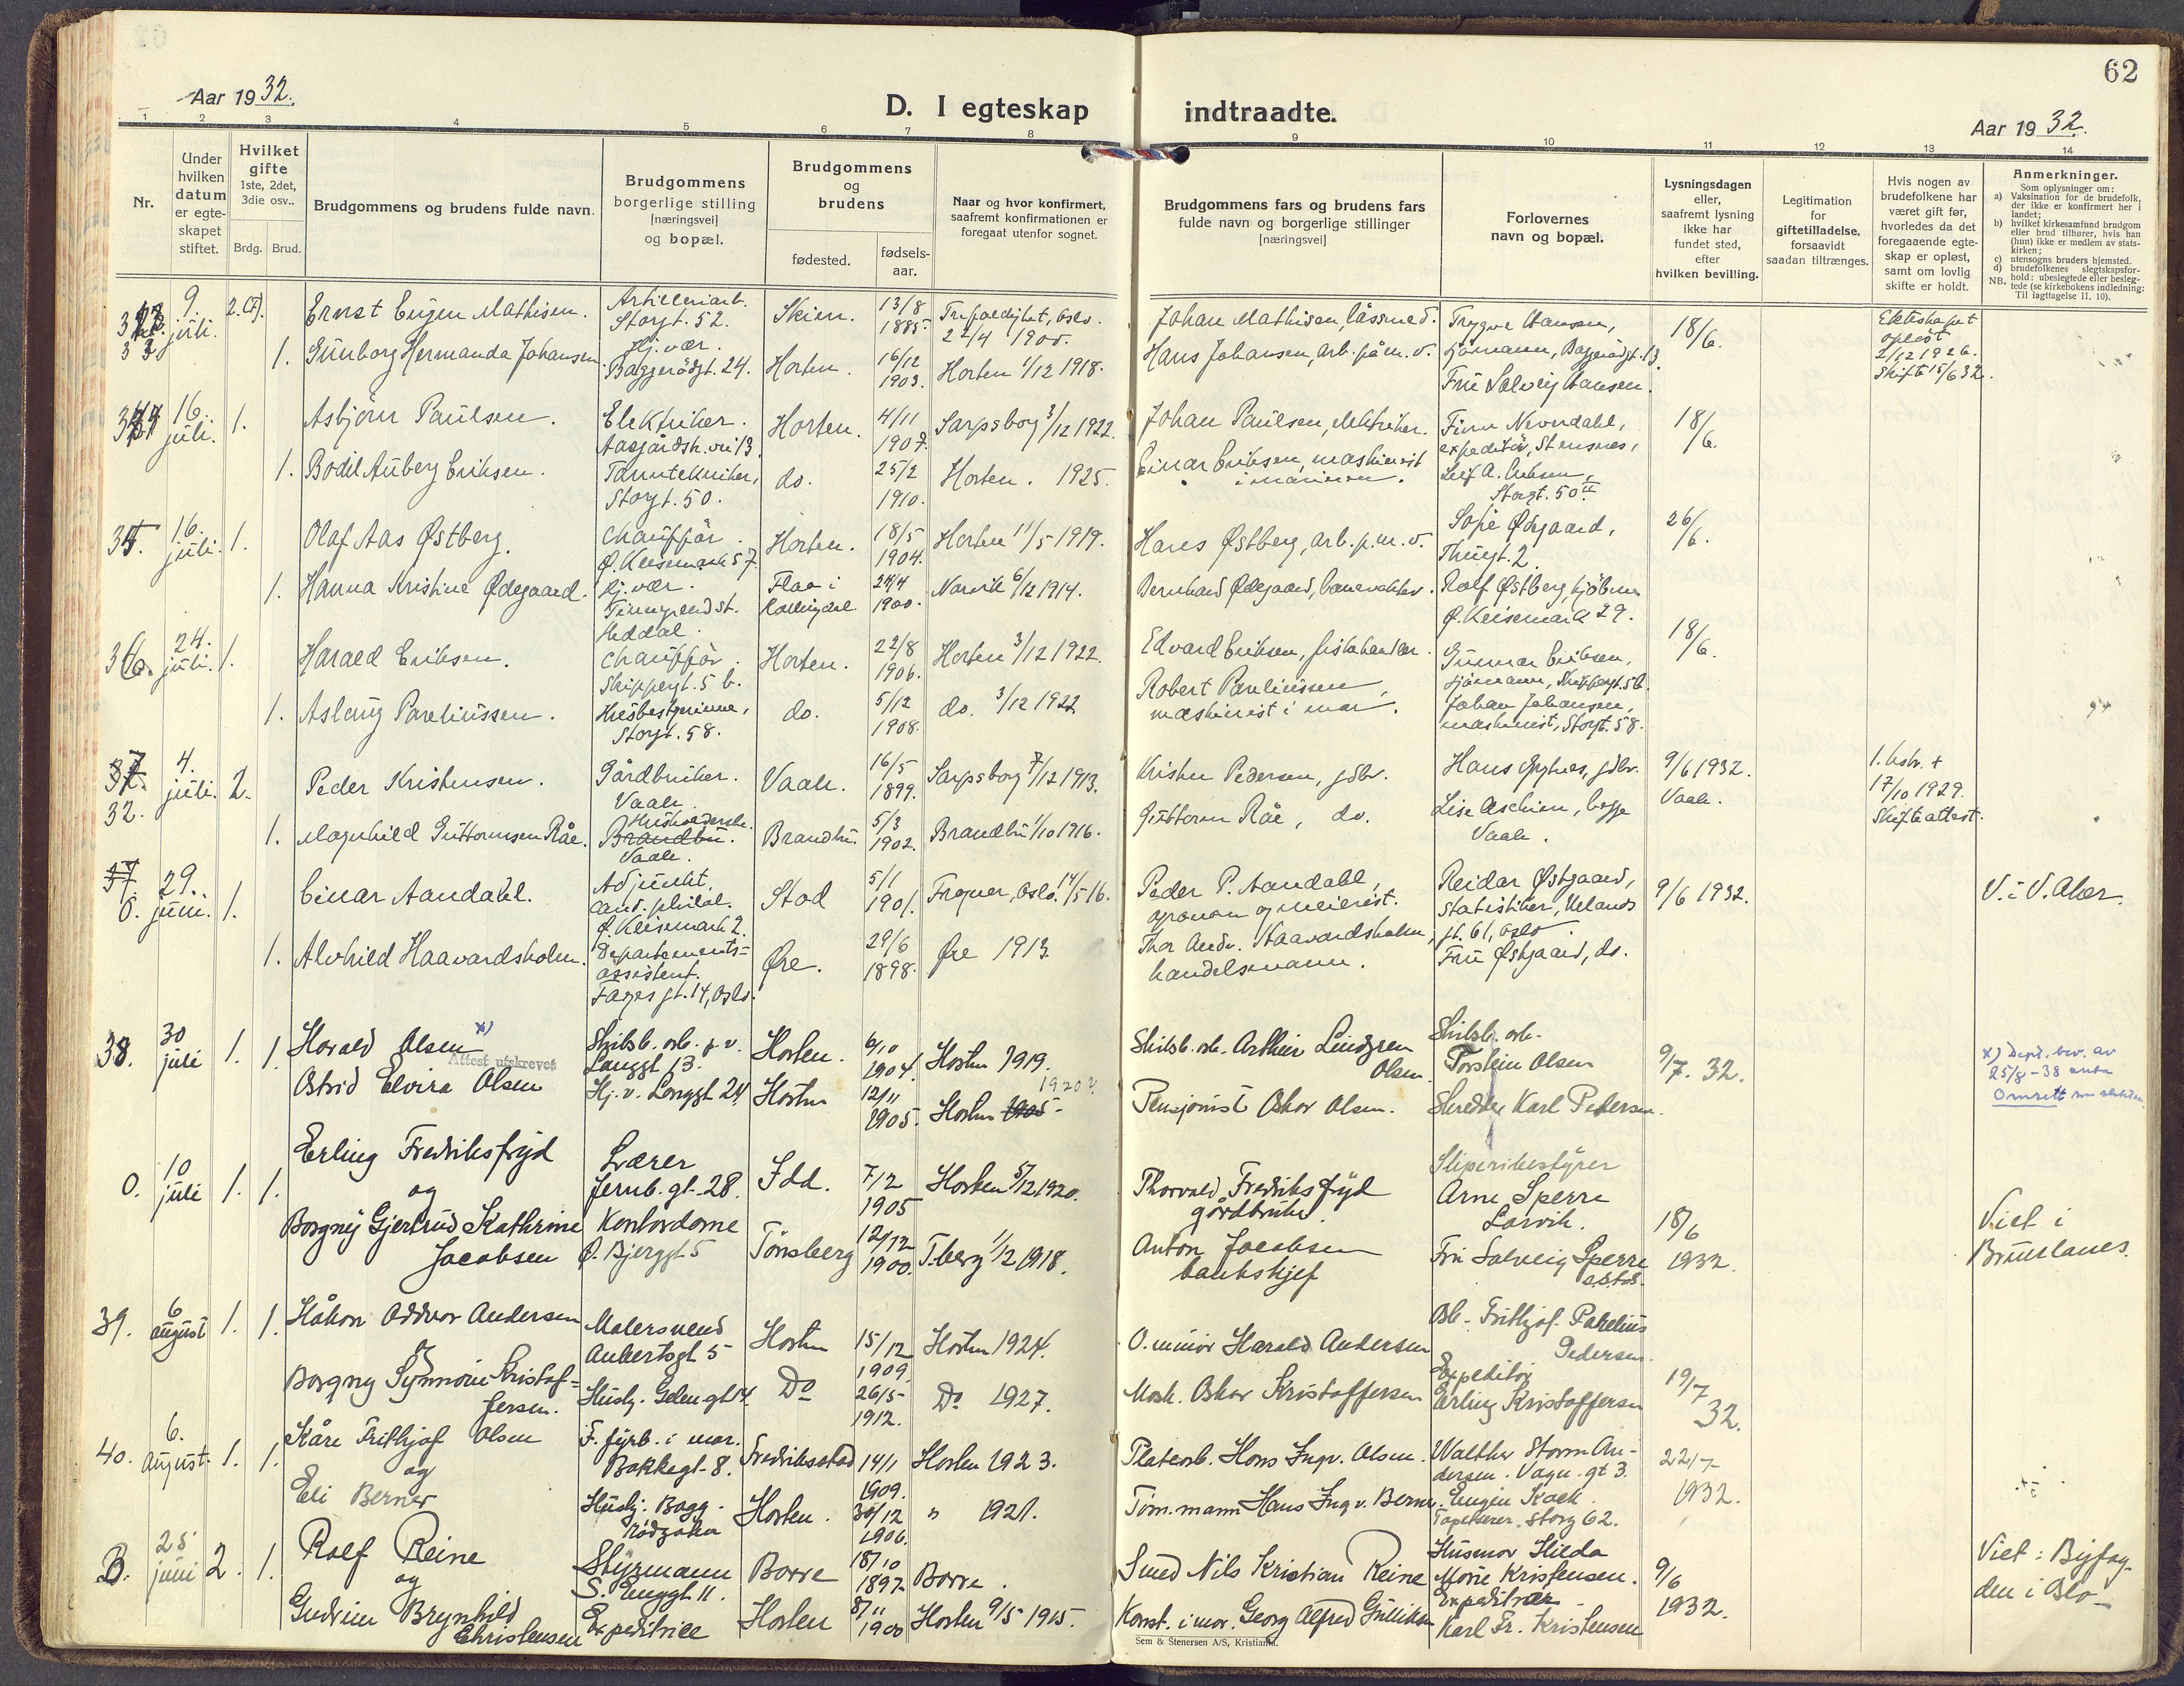 62
Aar 1932.
D. I egteskap indtraadte.
Aar 1932.
1 2 3 4 5 6 7 8 9 10 11 12 13 14
Nr.
Under hvilken datum er egteskapet stiftet.
Hvilket gifte
1ste, 2det, 3die osv..
Brdg. Brud.
Brudgommens og brudens fulde navn.
Brudgommens borgerlige stilling [næringsvei] og bopæl.
Brudgommens og brudens
fødested.
fødselsaar.
Naar og hvor konfirmert, saafremt konfirmationen er foregaat utenfor sognet.
Brudgommens fars og brudens fars fulde navn og borgerlige stillinger [næringsvei]
Forlovernes navn og bopæl.
Lysningsdagen eller, saafremt lysning ikke har fundet sted, efter hvilken bevilling.
Legitimation for giftetilladelse, forsaavidt saadan tiltrænges.
Hvis nogen av brudefolkene har været gift før, hvorledes da det foregaaende egteskap er opløst, samt om lovlig skifte er holdt.
Anmerkninger.
Som oplysninger om:
a) Vaksination for de brudefolk, der ikke er konfirmert her i landet;
b) hvilket kirkesamfund brudgom eller brud tilhører, hvis han (hun) ikke er medlem av statskirken;
c) utensogns bruders hjemsted.
d) brudefolkenes slegtskapsforhold: ubeslegtede eller beslegtede (se kirkebokens indledning: Til iagttagelse II. 10).
NB.
33. 9. juli. 2.
Ernst Eugen Mathisen.
Artilleriarb. Storgt. 52.
Skien.
13/8 1885.
22/4 1900.
Johan Mathisen, låssmed.
Trygve Hansen,
18/6.
Ekteskapet opløst 2/12 1926. Skifte 15/6 32.
1. Gunborg Hermanda Johansen
Hj. vær. Baggerødgt. 24.
Horten.
16/12 1903.
Horten 1/12 1918.
Hans Johansen, arb. på m. v.
sjømann, Baggerødgt. 13.
Fru Solveig Hansen.
34 16. juli. 1.
Asbjørn Paulsen.
Elektriker.
Horten.
4/11 1907.
Sarpsborg 3/12 1922.
Johan Paulsen, elektriker.
expeditør,
18/6.
1. Bodil Auberg Eriksen.
Tanntekniker, Storgt. 50.
do.
25/2 1910.
Horten. 1925.
Einar Eriksen, maskinist i marinen.
Leif A. Eriksen, Storgt. 50 II
35. 16. juli. 1.
Olaf Aas Østberg.
Chauffør. Ø. Keisemark 57.
Horten.
18/5 1904.
Horten 11/5 1919.
Hans Østberg, arb. p. m. v.
Ødegaard, Thuegt. 2.
26/6.
1. Hanna Kristine Ødegaard.
Hj. vær. Tinnegrend st. Heddal.
Flaa i Hallingdal
24/4 1900.
Narvik 6/12 1914.
Bernhard Ødegaard, banevokter.
Rolf Østberg,
Ø. Keisemark 29.
36. 24. juli. 1.
Harald Eriksen.
Chauffør. Skippergt. 5 b.
Horten.
22/8 1906.
Horten 3/12 1922.
Edvard Eriksen, fiskehandler.
Gunnar Eriksen, sjømann, Skippergt. 5 b.
18/6.
1. Aslaug Pareliussen.
Husbestyrerinne, Storgt. 58.
do.
5/12 1908.
do. 3/12 1922
Robert Pareliussen, maskinist i mar.
Johan Johansen, maskinist, Storgt. 58.
32. 4. juli. 2.
Peder Kristensen.
Gårdbruker. Vaale.
Vaale.
16/5 1899.
Sarpsborg 7/12 1913.
Kristen Pedersen, gdbr.
gdbr.
9/6 1932. Vaale.
1. hstr. + 17/10 1929. Skifteattest.
1. Magnhild Guttormsen Råe.
Husholderske. Brandbu. Vaale.
Brandbu.
5/3 1902.
Brandbu 1/10 1916.
Guttorm Råe, do.
begge Vaale.
37 0. 29. juni. 1.
Einar Aandahl.
Adjunkt, cand. philol. Ø. Keisemark 2.
Stod
5/1 1901.
Frogner, Oslo. 14/5 16.
Peder P. Aandahl, agronom og meierist.
Reidar Østgaard, statistiker, Uelands gt. 61, Oslo.
9/6 1932.
V. i V. Aker.
1. Alvhild Haavardsholm.
Departements-assistent. Fages gt. 14, Oslo.
Øre.
29/6 1898.
Øre 1913.
Thor Andr. Haavardsholm, handelsmann.
Fru Østgaard, do.
38. 30 juli 1. 1.
Harald Olsen x)
Attest utskrevet
Skibsb. arb. p. v. Langgt 13.
Horten.
6/10 1904.
Horten 1919.
Skibsb. arb. Arthur Lindgren Olsen.
Skibsb. arb. Torstein Olsen
9/7. 32.
x) Dept. bev. av 25/8-38
Astrid Elvira Olsen
Hj. v. Langgt 24
Horten
12/11 1905.
Horten 1905 - 1920?
Pensjonist Oskar Olsen.
Skredder Karl Pedersen.
0. 10 juli 1. 1.
Erling Fredriksfryd
og
Lærer Jernb. gt. 28.
Idd.
7/12 1905
Horten 5/12 1920.
Thorvald Fredriksfryd gårdbruker.
Sliperibestyrer Arne Sperre Larvik.
18/6 1932.
Viet i Brunlanes.
Borgny Gjertrud Kathrine Jacobsen
Kontordame Ø. Bjerggt 5
Tønsberg
12/12 1900.
T.berg 1/12 1918.
Anton Jacobsen banksjef
Fru Solveig Sperre
39. 6 august 1. 1.
Håkon Oddvar Andersen
og
Malersvend Ankertsgt 5
Horten
15/12 1909.
Horten 1924.
O. minør Harald Andersen
Frithjof Parelius Pedersen.
19/7 32.
Borgny Synnøve Kristoffersen.
Husbj. Gelengt 14
Do
26/5 1912.
Do 1927.
Mask. Oskar Kristoffersen
Expeditør Erling Kristoffersen
40. 6. August. 1. 1.
Kåre Frithjof Olsen
og
F. fyrb. i mar. Bakkegt. 8.
Fredriksstad
14/1 1909.
Horten 1923.
Platearb. Hans Ingv. Olsen.
Walther Storm Andersen. Vagn. gt 3.
22/7 1932.
Eli Berner
Horten.
30/12 1906.
" 1921.
Tøm.mann Hans Ingv. Berner.
Eugen Kock. Tapetserer. Storg 62.
25 juni 2. 1.
Rolf Reine
og
Styrmann S. Enggt 11.
Borre
18/10 1897
Borre.
Smed Nils Kristian Reine
Husmor Hilda Marie Kristensen.
9/6 1932.
Gudrun Brynhild Christensen
Expeditrice
Horten
8/11 1900
Horten 9/5 1915.
Konst. i mar. Georg Alfred Gulliksen
Expeditør Karl Fr. Kristensen
Sem & Stenersen A/S, Kristiania.